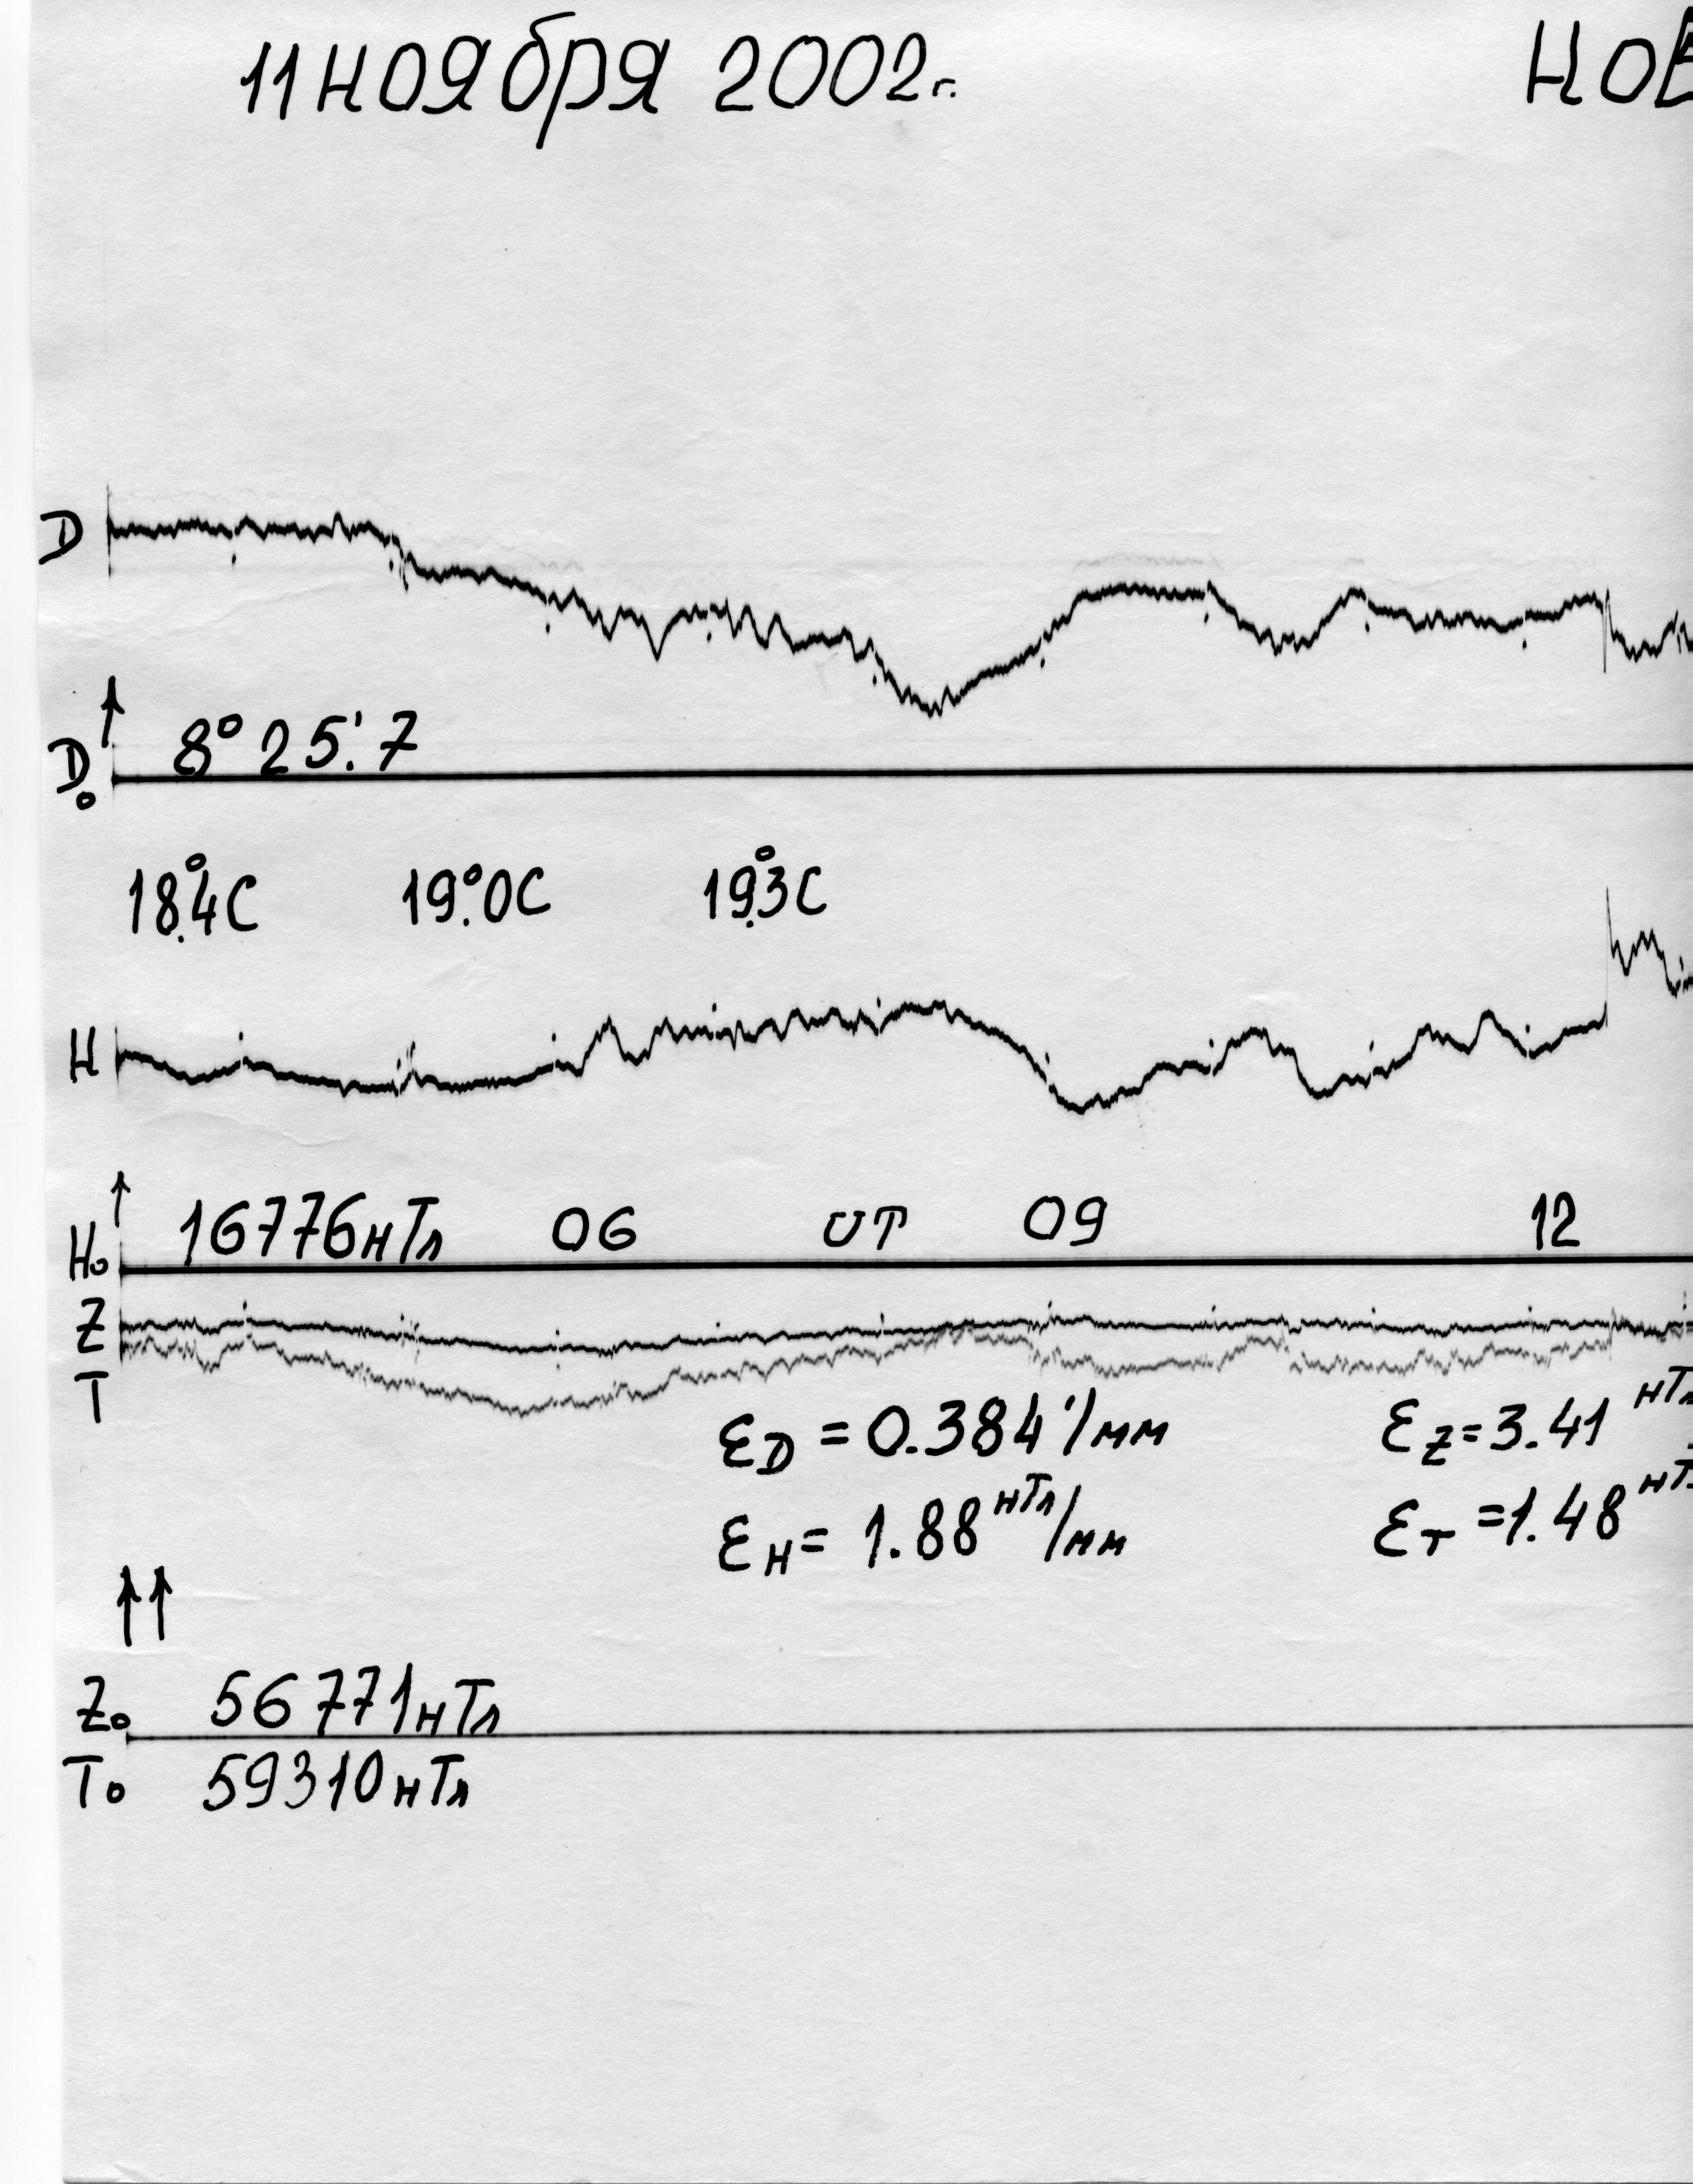 11 ноября 2002г. НОВ
D
D₀ 8° 25.′7
18.°4C 19.°0C 19.°3C
H
H₀ 16776нТл 06 UT 09 12
Z
T
εD = 0.384′/мм εZ = 3.41 нТл
εH = 1.88 нТл/мм εT = 1.48 нТ
Z₀ 56771нТл
T₀ 59310нТл